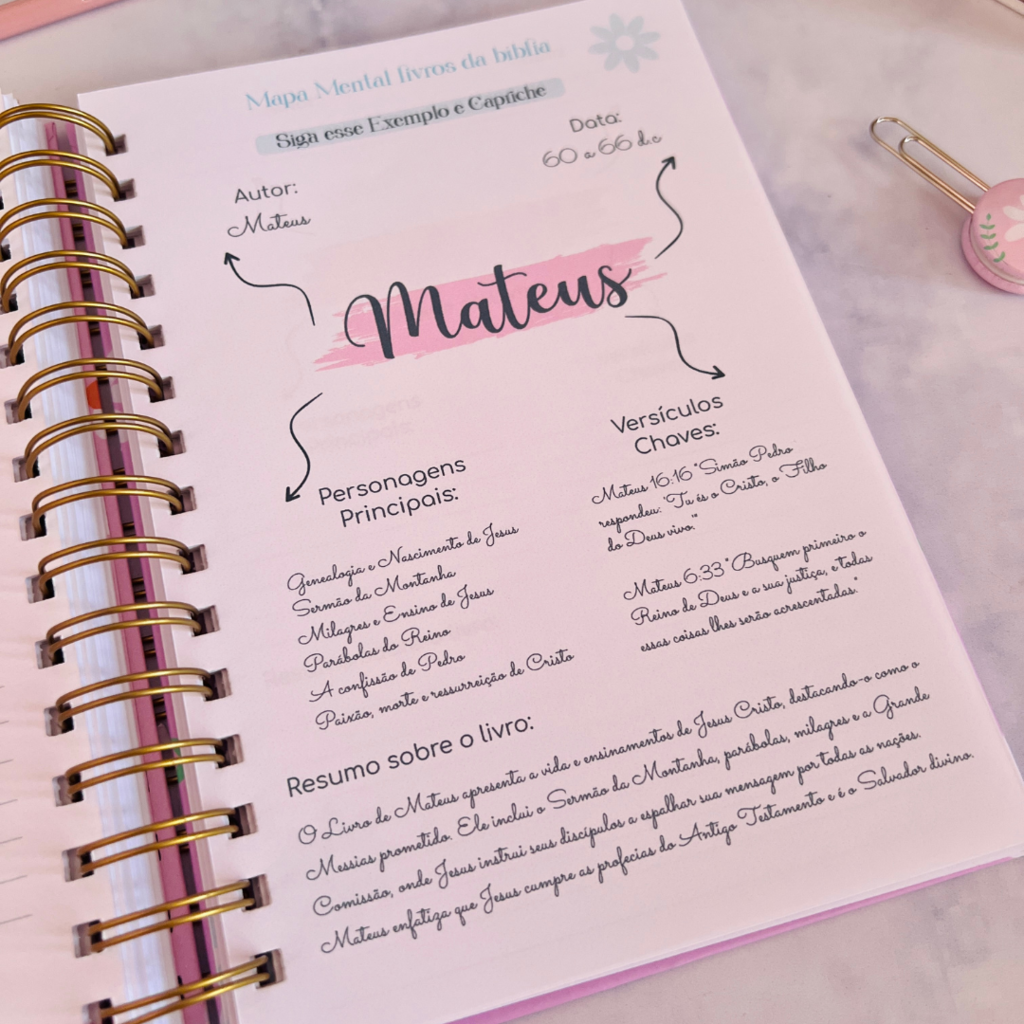 Mapa Mental livros da bíblia
Siga esse Exemplo e Capriche
Data:
60 a 66 d.c
Autor:
Mateus
Mateus
Versículos
Chaves:
Mateus 16:16 "Simão Pedro
respondeu: "Tu és o Cristo, o Filho
do Deus vivo.""
Mateus 6:33 "Busquem primeiro o
Reino de Deus e a sua justiça, e todas
essas coisas lhes serão acrescentadas."
Personagens
Principais:
Genealogia e Nascimento de Jesus
Sermão da Montanha
Milagres e Ensino de Jesus
Parábolas do Reino
A confissão de Pedro
Paixão, morte e ressurreição de Cristo
Resumo sobre o livro:
O Livro de Mateus apresenta a vida e ensinamentos de Jesus Cristo, destacando-o como o
Messias prometido. Ele inclui o Sermão da Montanha, parábolas, milagres e a Grande
Comissão, onde Jesus instrui seus discípulos a espalhar sua mensagem por todas as nações.
Mateus enfatiza que Jesus cumpre as profecias do Antigo Testamento e é o Salvador divino.